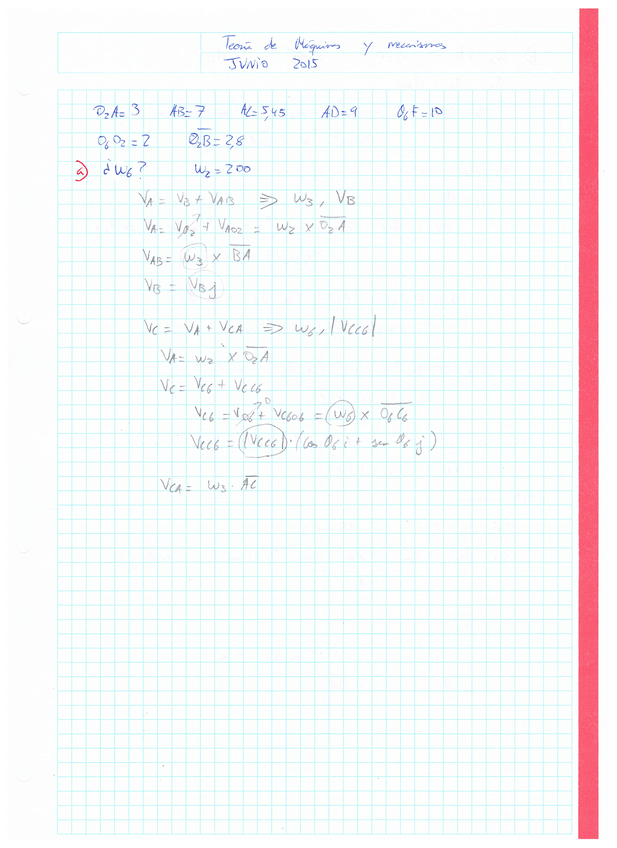 Teoría de Máquinas y mecanismos
JUNIO 2015
O₂A = 3 AB = 7 AC = 5,45 AD = 9 O₆F = 10
O₆O₂ = 2 O₂B = 2,8
a) ¿ω₆? ω₂ = 200
V_A = V_B + V_AB ⇒ ω₃, V_B
V_A = V_O₂ + V_AO2 = ω₂ × O₂A
V_AB = ω₃ × BA
V_B = V_B j
V_C = V_A + V_CA ⇒ ω₆, |V_CC6|
V_A = ω₂ × O₂A
V_C = V_C6 + V_CC6
V_C6 = V_O6 + V_C6O6 = ω₆ × O₆C₆
V_CC6 = |V_CC6| · (cos θ₆ i + sen θ₆ j)
V_CA = ω₃ · AC